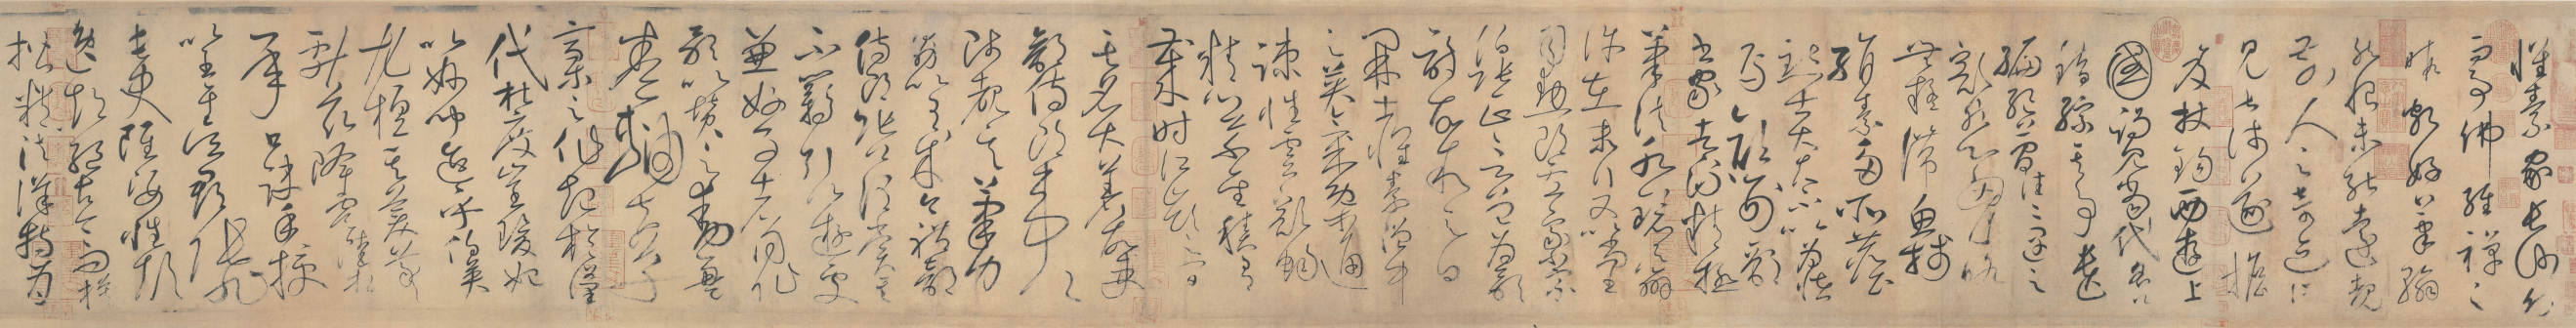 懷素家長沙幼
而事佛經禪之
暇頗好筆翰
然恨未能遠覩
前人之奇迹所
見甚淺遂擔
笈杖錫西遊上
國謁見當代名公
錯綜其事遺
編絕簡往往遇之
豁然心胸略
無疑滯魚牋
絹素多所塵
點士大夫不以為怪
焉顏刑部
書家者流精極
筆法水鏡之辨
許在末行又以尚書
司勳郎盧象小宗
伯張正言曾為歌
詩故敘之曰
開士懷素僧中
之英氣概通
疏性靈豁暢
精心草聖積有
歲時江嶺之間
其名大著故吏
部侍郎韋公
陟覩其筆力
勗以有成今禮部
侍郎張公謂賞其
不羈引以遊處
兼好事者同作
歌以贊之動盈
卷軸夫草
稿之作起於漢
代杜度崔瑗始
以妙聞迨乎伯英
尤擅其美羲
獻茲降虞陸相
承口訣手授
以至于吳郡張旭
長史雖姿性顛
逸超絕古今而模
楷精法詳特為